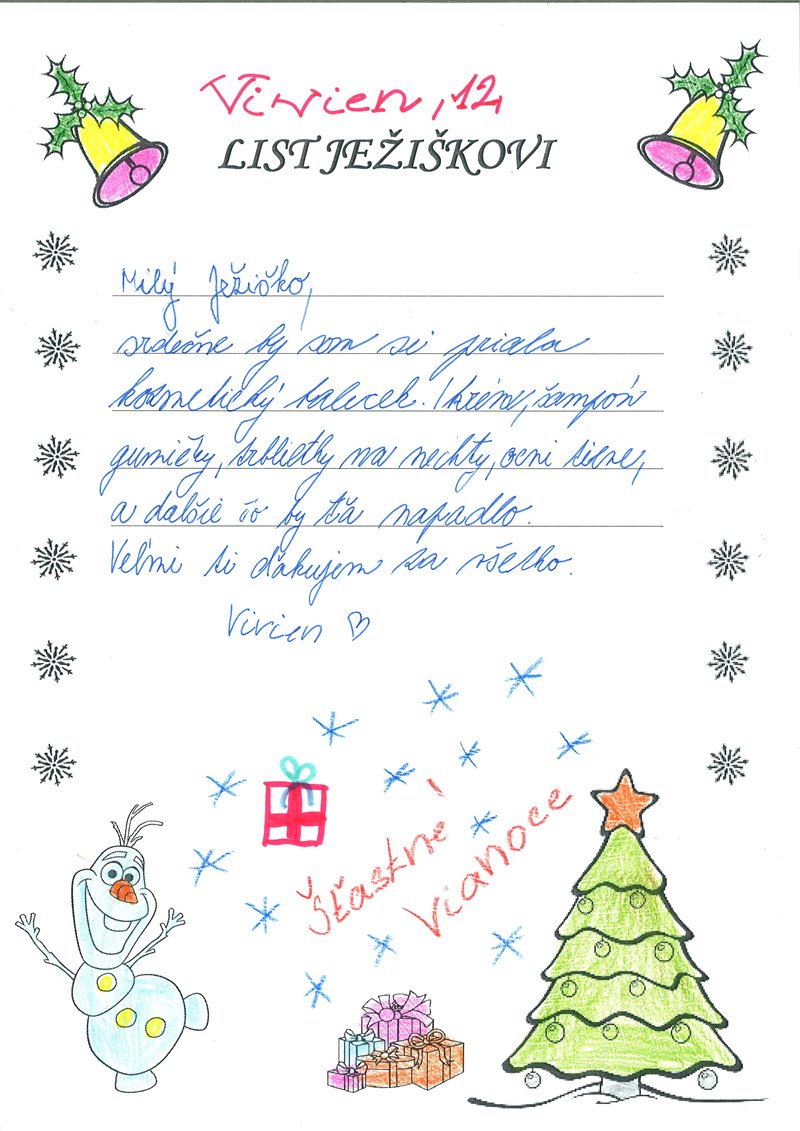 Vivien, 12
LIST JEŽIŠKOVI
Milý Ježiško,
srdečne by som si priala
kozmetický balicek. (krém, šampón
gumičky, trblietky na nechty, ocni tiene,
a dalšie čo by ťa napadlo.
Veľmi ti ďakujem za všetko.
Vivien ♡
Šťastné
Vianoce